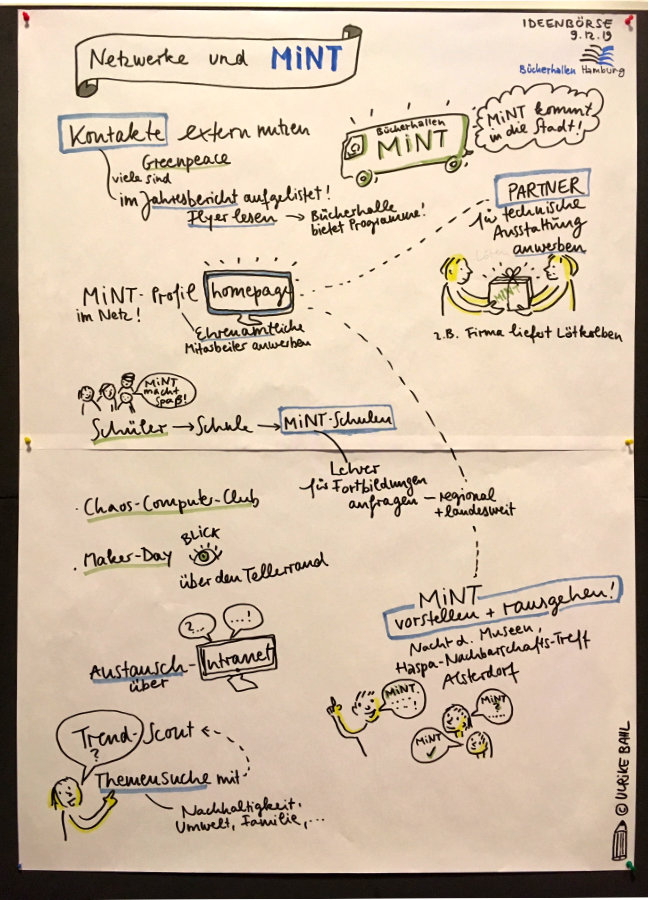 IDEENBÖRSE
9.12.19
Bücherhallen Hamburg
Netzwerke und MiNT
Kontakte extern nutzen
Greenpeace
viele sind
im Jahresbericht aufgelistet!
Flyer lesen → Bücherhalle
bietet Programme!
Bücherhallen
MiNT
MiNT kommt
in die Stadt!
PARTNER
für technische
Ausstattung
anwerben
MINT
z.B. Firma liefert Lötkolben
MiNT-Profil homepage
im Netz!
Ehrenamtliche
Mitarbeiter anwerben
MiNT
macht
Spaß!
Schüler → Schule → MiNT-Schulen
Lehrer
für Fortbildungen
anfragen – regional
+ landesweit
· Chaos-Computer-Club
· Maker-Day
BLICK
über den Tellerrand
MiNT
vorstellen + rausgehen!
Nacht d. Museen,
Haspa-Nachbarschafts-Treff
Alsterdorf
?...
...!
Austausch- Intranet
über
MiNT.
MiNT
?
MiNT
✓
Trend-Scout
?
Themensuche mit
Nachhaltigkeit,
Umwelt, Familie,...
© ULRIKE BAHL